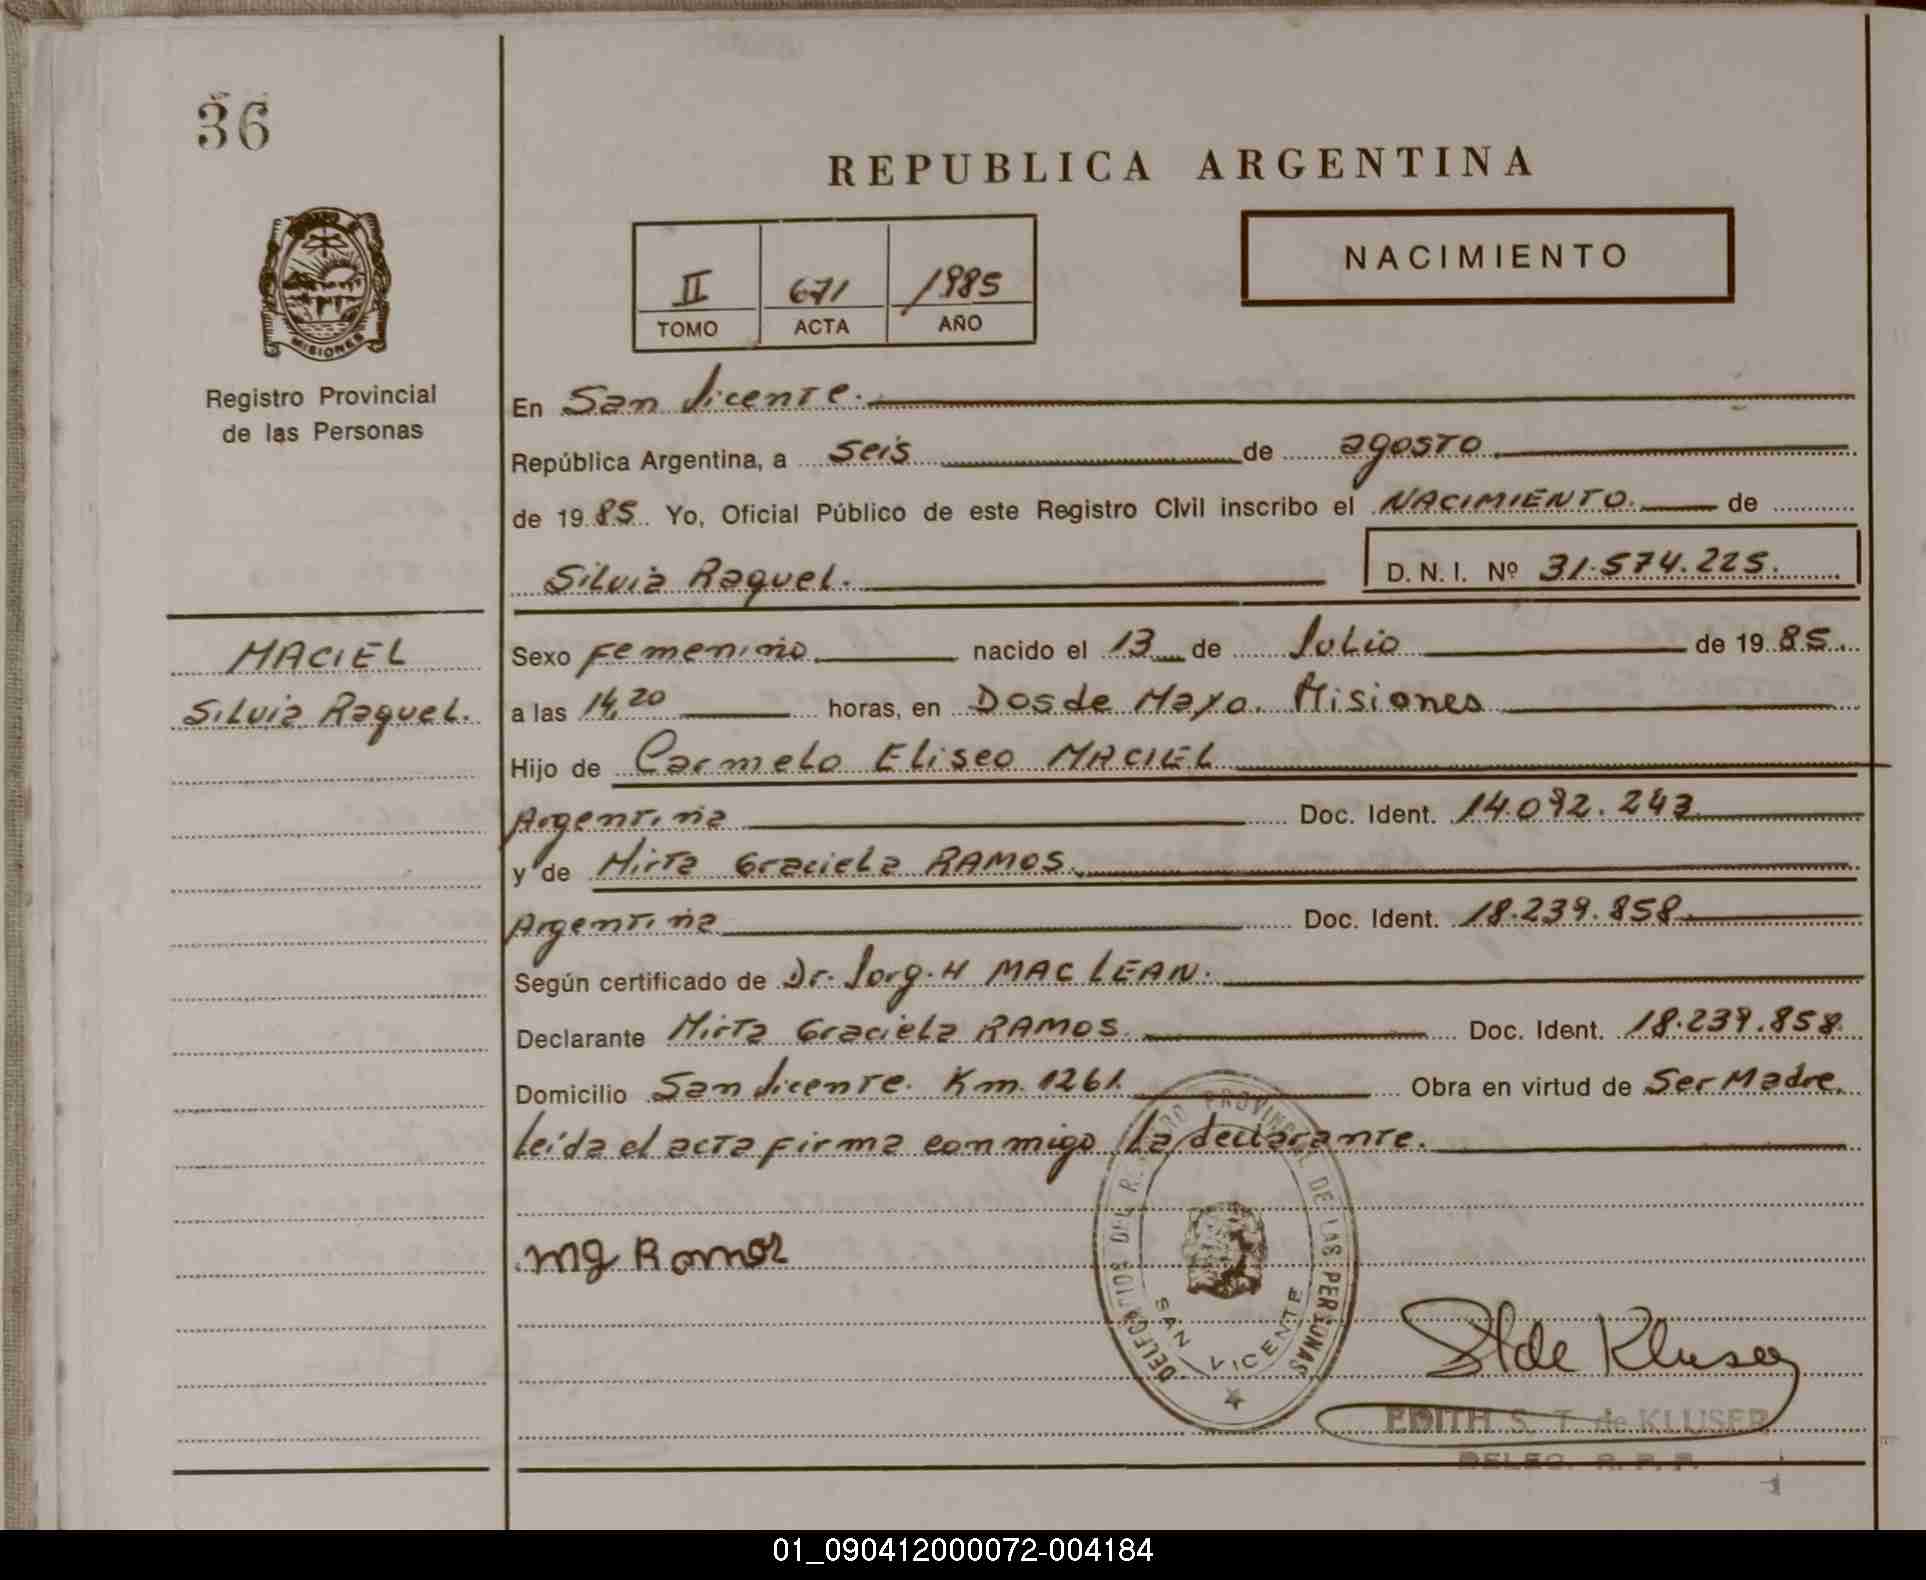 36
REPUBLICA ARGENTINA
NACIMIENTO
II 671 1985
TOMO ACTA AÑO
MISIONES
Registro Provincial
de las Personas
En San Vicente.
República Argentina, a seis de agosto
de 1985. Yo, Oficial Público de este Registro Civil inscribo el NACIMIENTO. de
Silvia Raquel. D. N. I. Nº 31.574.225.
MACIEL
Silvia Raquel.
Sexo Femenino nacido el 13 de Julio de 1985.
a las 14,20 horas, en Dos de Mayo. Misiones
Hijo de Carmelo Eliseo MACIEL
Argentina Doc. Ident. 14.092.243
y de Mirta Graciela RAMOS.
Argentina Doc. Ident. 18.239.858
Según certificado de Dr. Jorg. H MAC LEAN.
Declarante Mirta Graciela RAMOS. Doc. Ident. 18.239.858
Domicilio San Vicente. Km. 1261. Obra en virtud de Ser Madre.
Leída el acta firma conmigo La declarante.
mg Ramos
DELEGATIOS DEL REGISTRO PROVINCIAL DE LAS PERSONAS
SAN VICENTE
de Kluser
EDITH S. T. de KLUSER
DELEG. R. P. P.
01_090412000072-004184